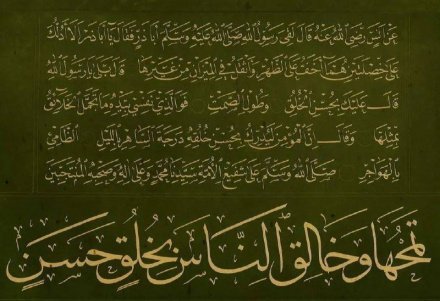 عن أنس رضي الله عنه قال لقي رسول الله صلى الله عليه وسلم أبا ذر فقال يا أبا ذر ألا أدلك
على خصلتين هما أخف على الظهر وأثقل في الميزان من غيرهما قال بلى يا رسول الله
قال عليك بحسن الخلق وطول الصمت فوالذي نفسي بيده ما تجمل الخلائق
بمثلها وقال إن المؤمن ليدرك بحسن خلقه درجة الساهر بالليل الظامئ
بالهواجر صلى الله وسلم على شفيع الأمة سيدنا محمد وعلى آله وصحبه المنتجبين
تمحها وخالق الناس بخلق حسن